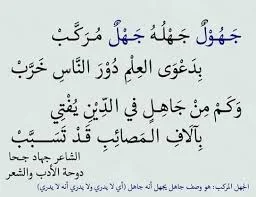 جَهُوْلٌ جَهْلُهُ جَهْلٌ مُرَكَّبْ
بِدَعْوَى العِلْمِ دُوْرَ النَّاسِ خَرَّبْ
وَكَمْ مِنْ جَاهِلٍ في الدِّيْنِ يُفْتِي
بِآلَافِ المَصَائِبِ قَدْ تَسَبَّبْ
الشاعر جهاد جحا
دوحة الأدب والشعر
الجهل المركب: هو وصف جاهل يجهل أنه جاهل (أي لا يدري ولا يدري أنه لا يدري)